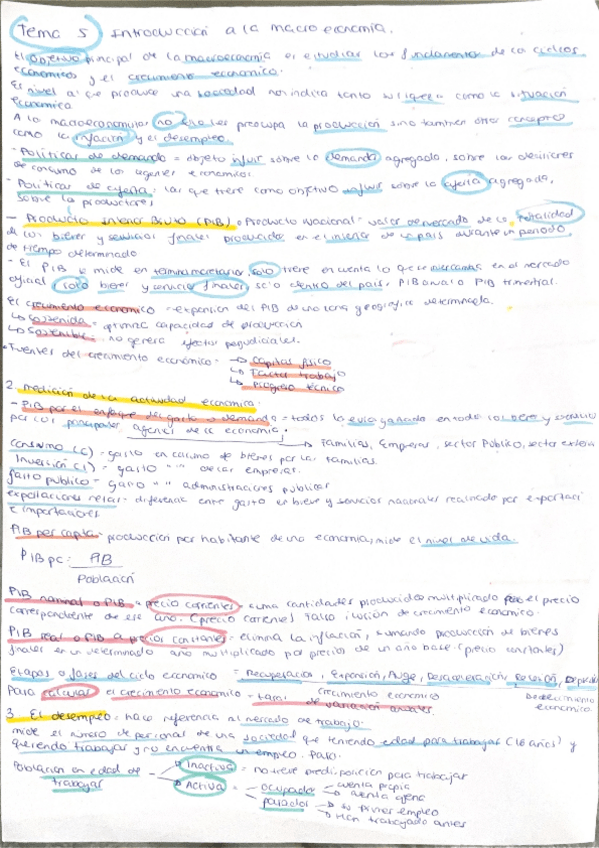 Tema 5 Introducción a la macroeconomía.
El objetivo principal de la macroeconomía es estudiar los fundamentos de los ciclos
económicos y el crecimiento económico.
El nivel al que produce una sociedad nos indica tanto su como la situación
económica
A la macroeconomía no solo les preocupa la producción sino también otros conceptos
como la inflación y el desempleo.
- Políticas de demanda = objeto influir sobre la demanda agregada, sobre las decisiones
de consumo de los agentes económicos.
- Políticas de oferta = las que tiene como objetivo influir sobre la oferta agregada,
sobre la productores
- Producto Interior Bruto (PIB) o Producto Nacional = valor de mercado de la totalidad
de los bienes y servicios finales producido en el interior de un país durante un periodo
de tiempo determinado
- El PIB se mide en términos monetarios, solo tiene en cuenta lo que intercambia en el mercado
oficial, solo bienes y servicios finales, solo dentro del país, PIB anual o PIB trimestral.
El crecimiento económico = expansión del PIB de una zona geográfica determinada.
↳ Sostenida = optimiza capacidades de producción
↳ Sostenible = no genera efectos perjudiciales.
• Fuentes del crecimiento económico = → Capital físico
↳ Factor trabajo
↳ Progreso técnico
2. Medición de la actividad económica.
- PIB por el enfoque del gasto o demanda = todos los en todo los bienes y servicios
por los principales agentes de la economía.
→ Familias, Empresas, sector Público, sector exterior
Consumo (C) = gasto en consumo de bienes por las familias.
Inversión (I) = gasto " " de las empresas.
Gasto público = gasto " " administraciones públicas
exportaciones netas = diferencia entre gasto en bienes y servicios nacionales realizado por exportaci
e importaciones
PIB per capita = producción por habitante de una economía, mide el nivel de vida.
PIBpc = PIB
Población
PIB nominal o PIB a precios corrientes = suma cantidades producidas multiplicado por el precio
correspondiente de ese año. (precio corriente) Falsa ilusión de crecimiento económico.
PIB real o PIB a precios constantes = elimina la inflación, sumando producción de bienes
finales en un determinado año multiplicado por precios de un año base (precio constantes)
Etapas o fases del ciclo económico = Recuperación, Expansión, Auge, Desaceleración, Recesión, Depresión
crecimiento económico Decrecimiento económico
Para calcular el crecimiento económico = tasa de variación anuales.
3. El desempleo = hace referencia al mercado de trabajo.
mide el número de personas de una sociedad que teniendo edad para trabajar (16 años) y
queriendo trabajar y no encuentra un empleo. Paro.
Población en edad de trabajar → Inactiva = no tiene predisposición para trabajar
→ Activa = → ocupados → cuenta propia
→ cuenta ajena
→ parados → su primer empleo
→ Han trabajado antes